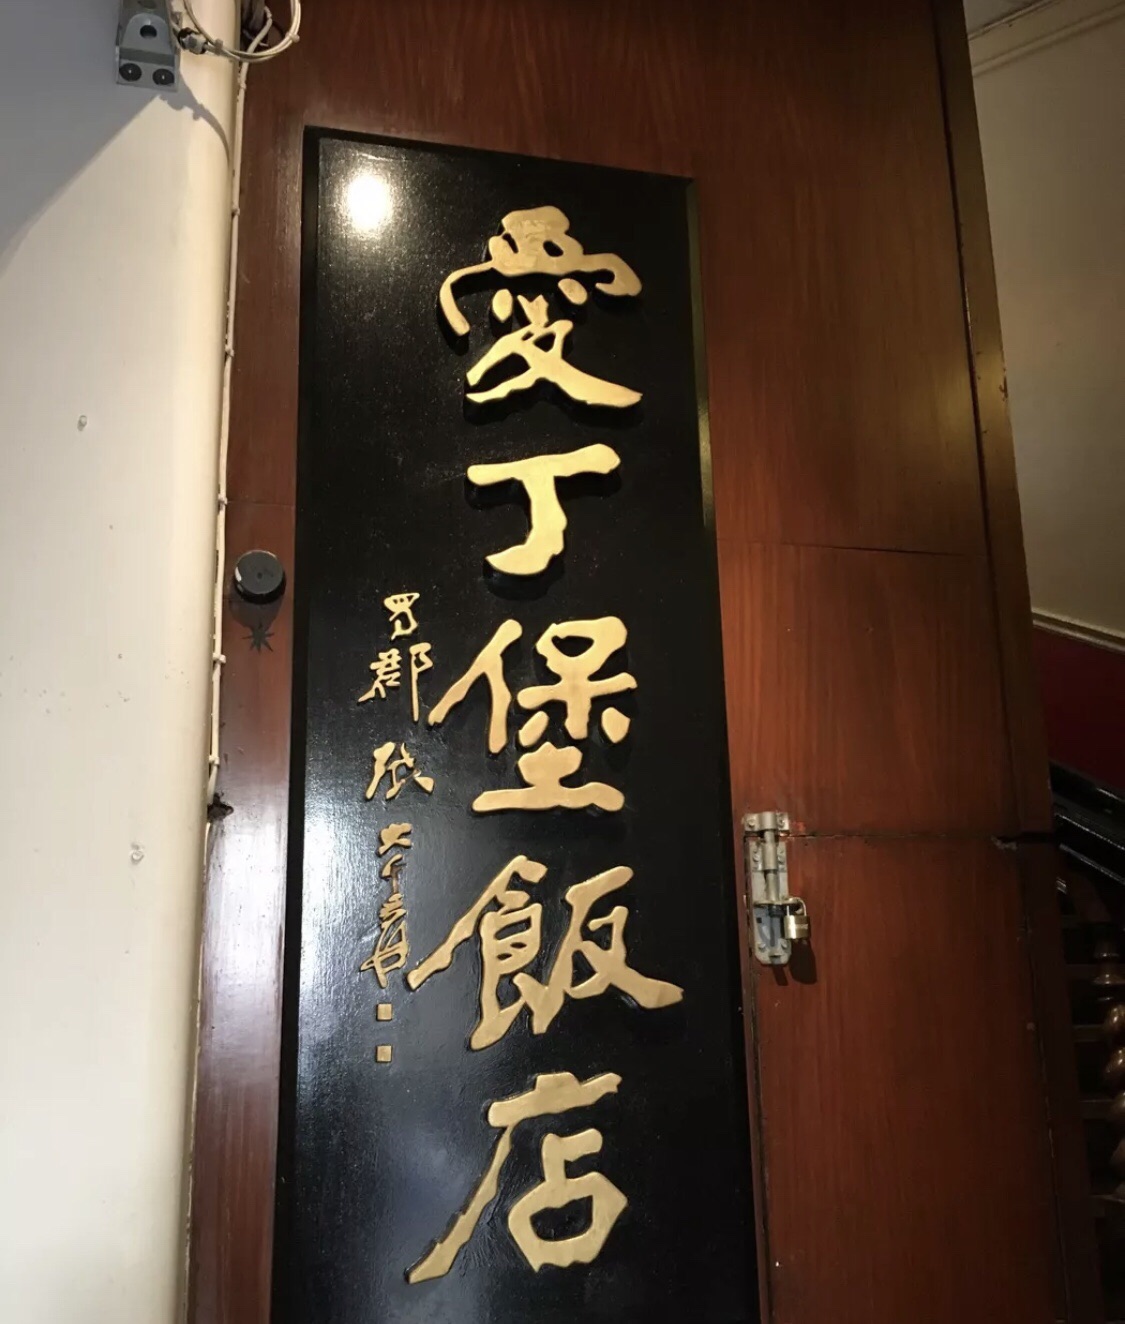 愛丁堡飯店
蜀郡張大千爰